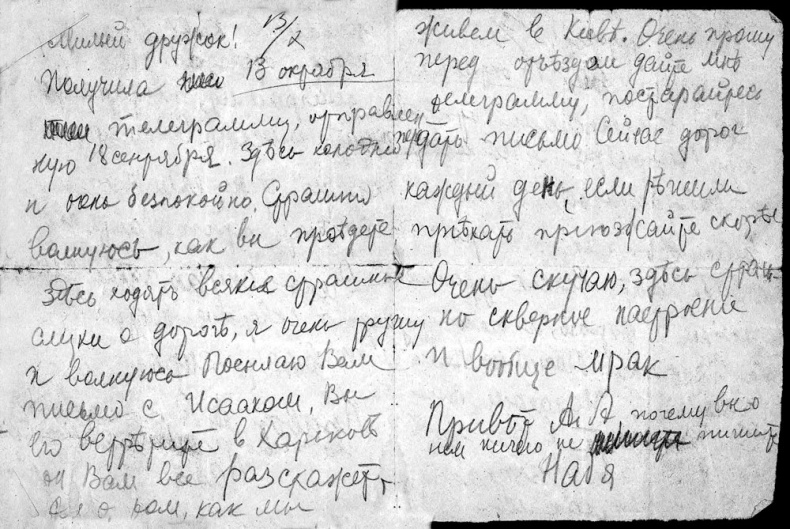 Милый дружок! 13/X
Получила 13 октября
телеграмму, отправлен
ную 18 сентября. Здѣсь холодно
и очень безпокойно. Страшно
волнуюсь, как вы проѣдете
Здѣсь ходятъ всякие страшные
слухи о дорогѣ, я очень грущу
и волнуюсь Посылаю Вам
письмо с Исааком, Вы
его встрѣтите в Харьковѣ
он Вам все разскажет,
о том, как мы
живем в Киевѣ. Очень прошу
перед отъѣздом дайте мнѣ
телеграмму, постарайтесь
передать письмо Сейчас дорог
каждый день, если рѣшили
приѣхать приѣзжайте скорѣе
Очень скучаю, здѣсь страш-
но скверное настроение
и вообще мрак
Привѣт А. А почему вы о
нем ничего не пишите
Надя